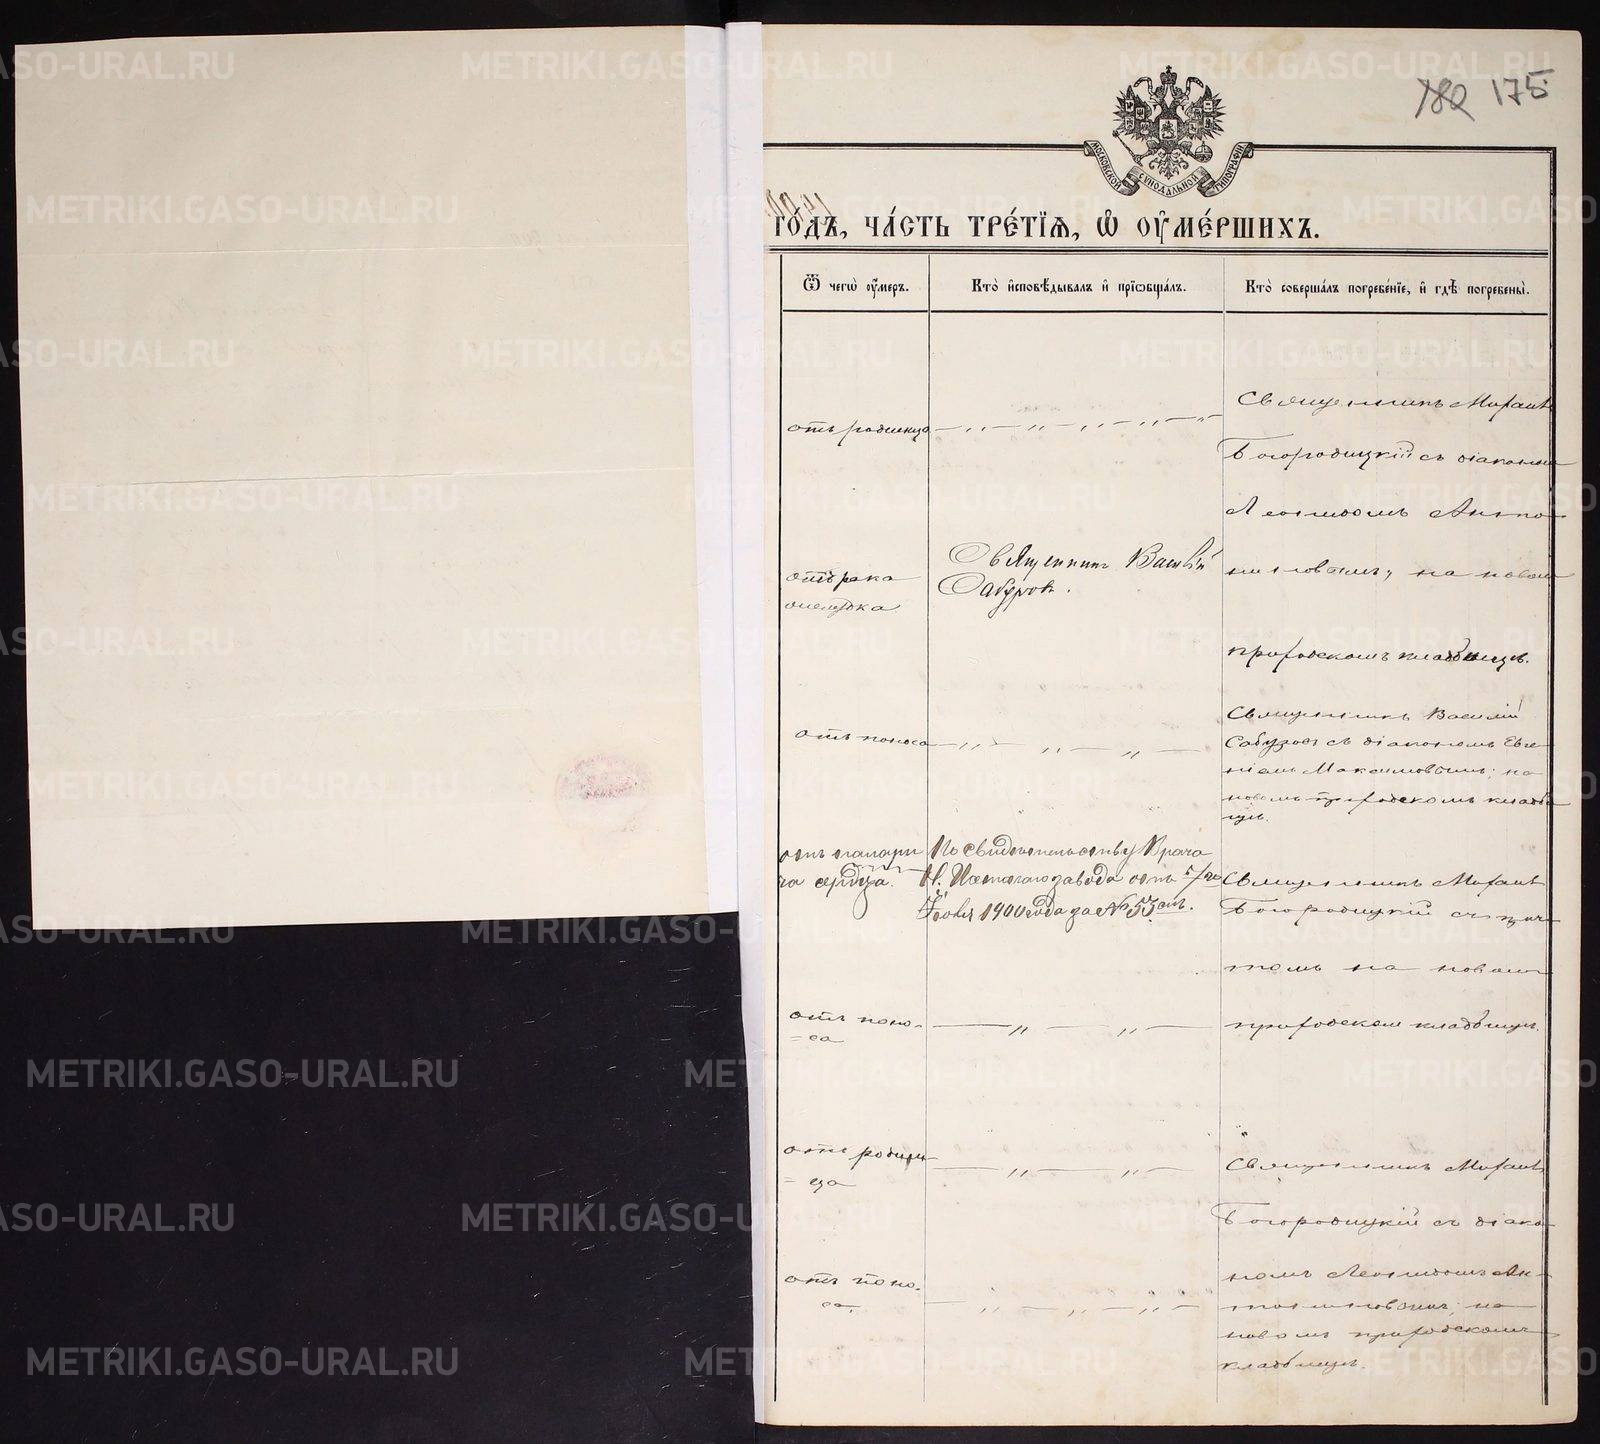 180 175
МОСКОВСКОЙ СѴНОДАЛЬНОЙ ТИПОГРАФІИ
го́дъ, ча́сть тре́тїѧ, ѡ҆ ᲂу҆ме́ршихъ.
Ѿ чегѡ̀ ᲂу҆́меръ.
Кто̀ и҆сповѣ́дывалъ и҆ прїѡбща́лъ.
Кто̀ соверша́лъ погребе́нїе, и҆ гдѣ̀ погребены̀.
отъ родимца
Священникъ Михаилъ
Богородицкій съ діакономъ
Леонидомъ Анто-
ниновымъ, на новомъ
приходскомъ кладбищѣ.
отъ рака
желудка
Священникъ Василій
Сабуровъ.
отъ поноса
Священникъ Василій
Сабуровъ съ діакономъ Евге-
ніемъ Максимовымъ; на
новомъ приходскомъ кладби-
щѣ.
отъ паралича
сердца.
По свидѣтельству Врача
Н. Исетскаго завода отъ 5/20
Іюля 1900 года за № 53
Священникъ Михаилъ
Богородицкій съ
на новомъ
приходскомъ кладбищѣ.
отъ поно-
=са
отъ родим
=ца
Священникъ Михаилъ
Богородицкій съ діако-
номъ Леонидомъ Ан-
тониновымъ; на
новомъ приходскомъ
кладбищѣ.
отъ поно-
са.
METRIKI.GASO-URAL.RU